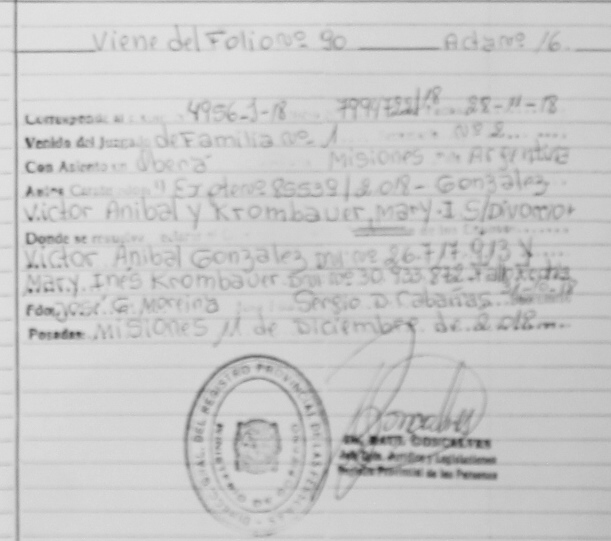 Viene del Folio Nº 90 Acta Nº 16.
Corresponde al 4956-J-18 799/722/18 28-11-18
Venido del Juzgado de Familia Nº 1 Nº 2
Con Asiento en Oberá Misiones Argentina
Autos Caratulados "Expte Nº 85539/2018 - González
Victor Anibal y Krombauer, Mary. I S/Divorcio"
Donde se resuelve
Victor Anibal Gonzalez DNI Nº 26.717.913 y
Mary. Inés Krombauer DNI Nº 30.923.872. Fallo
Fdo. José. G. Moreira Sergio D. Cabañas
Posadas. Misiones 11 de Diciembre de 2.018
DIREC. GRAL. DEL REGISTRO PROVINCIAL DE LAS PERSONAS
DR. RAUL GONCALVES
Registro Provincial de las Personas